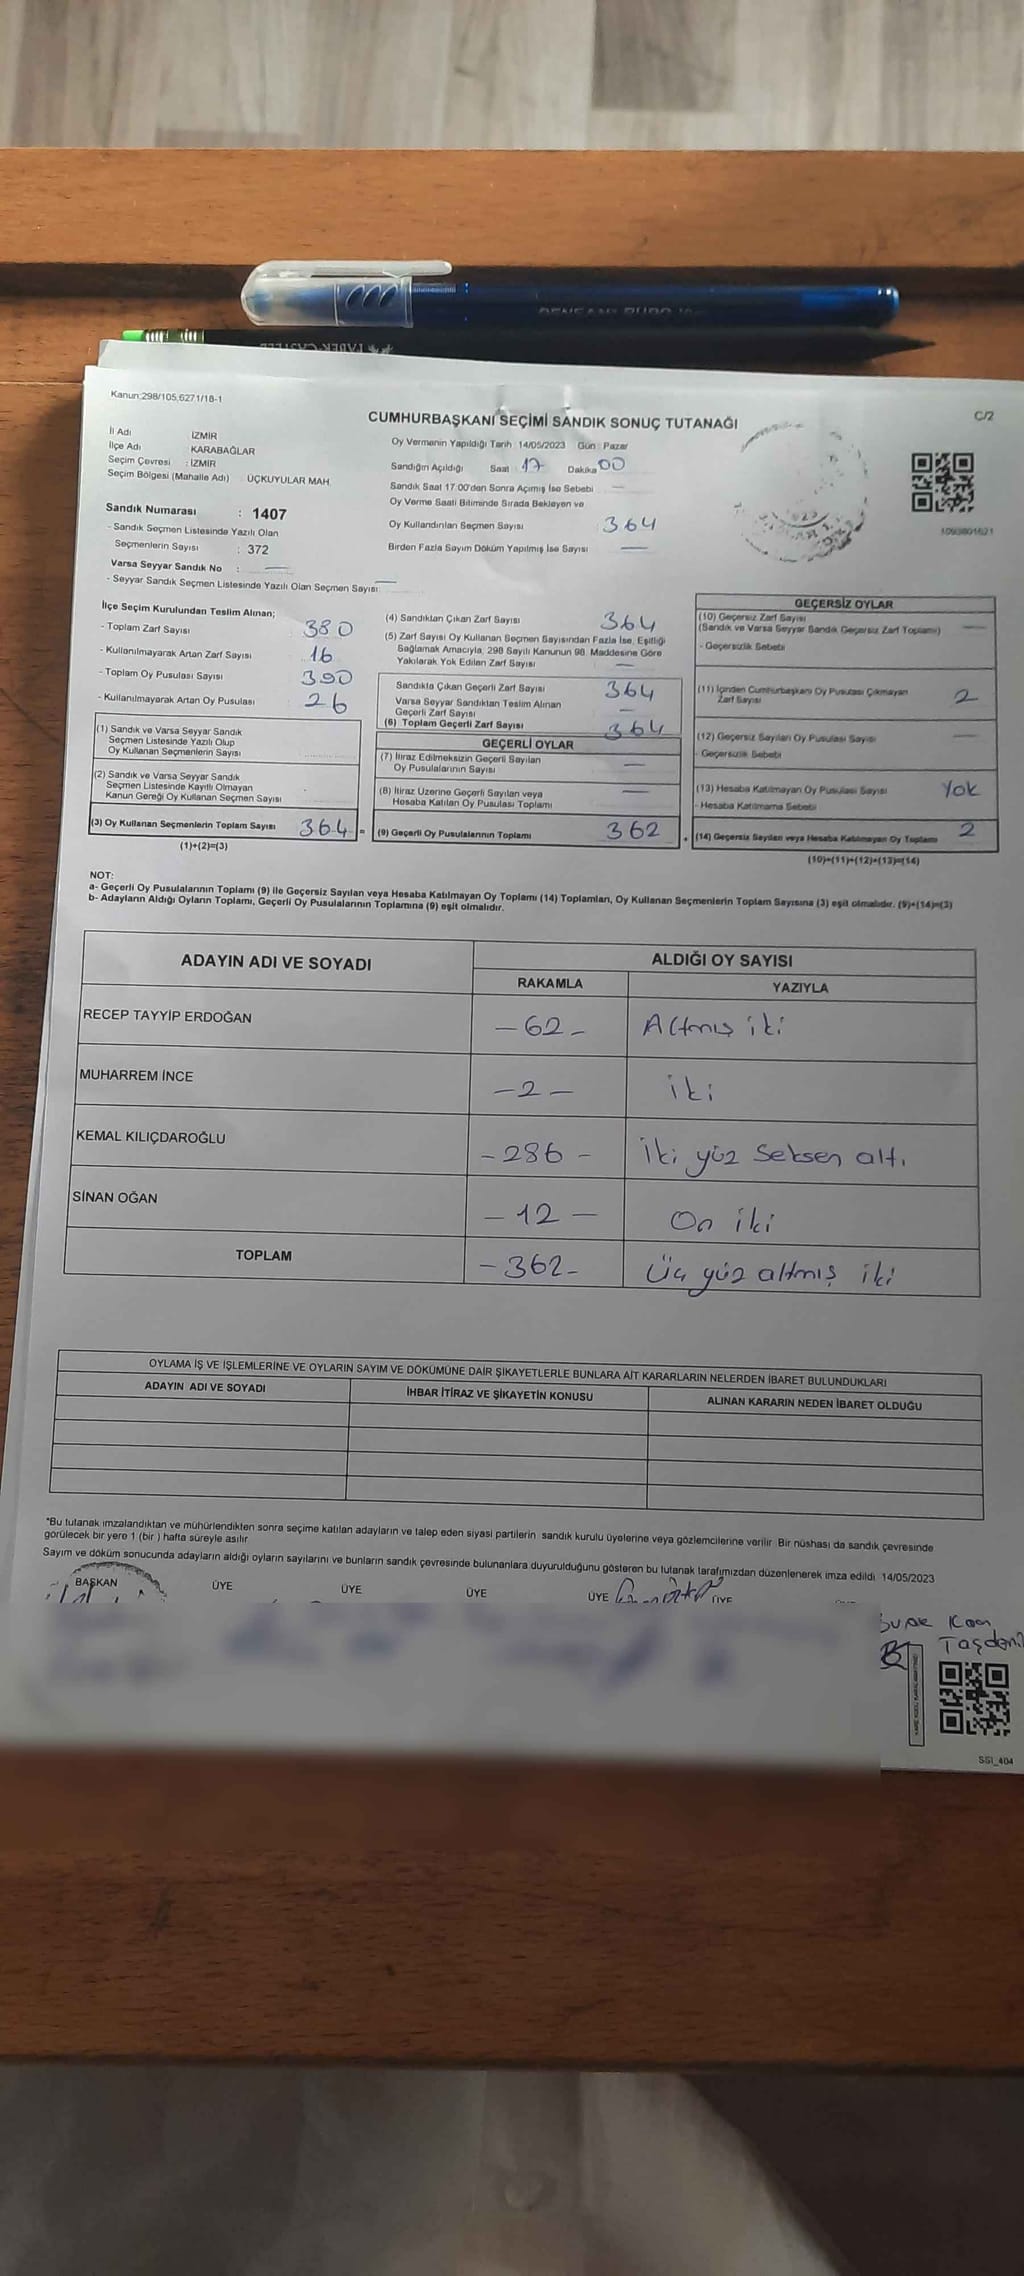 Kanun:298/105,6271/18-1
C/2
CUMHURBAŞKANI SEÇİMİ SANDIK SONUÇ TUTANAĞI
İl Adı İZMİR
İlçe Adı KARABAĞLAR
Seçim Çevresi : İZMİR
Seçim Bölgesi (Mahalle Adı) : ÜÇKUYULAR MAH.
Sandık Numarası : 1407
- Sandık Seçmen Listesinde Yazılı Olan
Seçmenlerin Sayısı : 372
Varsa Seyyar Sandık No : —
- Seyyar Sandık Seçmen Listesinde Yazılı Olan Seçmen Sayısı: —
Oy Vermenin Yapıldığı Tarih : 14/05/2023 Gün : Pazar
Sandığın Açıldığı Saat 17 Dakika 00
Sandık Saat 17:00'den Sonra Açımış İse Sebebi —
Oy Verme Saati Bitiminde Sırada Bekleyen ve
Oy Kullandırılan Seçmen Sayısı 364
Birden Fazla Sayım Döküm Yapılmış İse Sayısı —
1093801621
İlçe Seçim Kurulundan Teslim Alınan;
- Toplam Zarf Sayısı 380
- Kullanılmayarak Artan Zarf Sayısı 16
- Toplam Oy Pusulası Sayısı 390
- Kullanılmayarak Artan Oy Pusulası 26
(1) Sandık ve Varsa Seyyar Sandık
Seçmen Listesinde Yazılı Olup
Oy Kullanan Seçmenlerin Sayısı
(2) Sandık ve Varsa Seyyar Sandık
Seçmen Listesinde Kayıtlı Olmayan
Kanun Gereği Oy Kullanan Seçmen Sayısı
(3) Oy Kullanan Seçmenlerin Toplam Sayısı 364 =
(1)+(2)=(3)
(4) Sandıktan Çıkan Zarf Sayısı 364
(5) Zarf Sayısı Oy Kullanan Seçmen Sayısından Fazla İse, Eşitliği
Sağlamak Amacıyla, 298 Sayılı Kanunun 98. Maddesine Göre
Yakılarak Yok Edilen Zarf Sayısı —
Sandıkta Çıkan Geçerli Zarf Sayısı 364
Varsa Seyyar Sandıktan Teslim Alınan
Geçerli Zarf Sayısı —
(6) Toplam Geçerli Zarf Sayısı 364
GEÇERLİ OYLAR
(7) İtiraz Edilmeksizin Geçerli Sayılan
Oy Pusulalarının Sayısı —
(8) İtiraz Üzerine Geçerli Sayılan veya
Hesaba Katılan Oy Pusulası Toplamı —
(9) Geçerli Oy Pusulalarının Toplamı 362
GEÇERSİZ OYLAR
(10) Geçersiz Zarf Sayısı
(Sandık ve Varsa Seyyar Sandık Geçersiz Zarf Toplamı) —
- Geçersizlik Sebebi
(11) İçinden Cumhurbaşkanı Oy Pusulası Çıkmayan
Zarf Sayısı 2
(12) Geçersiz Sayılan Oy Pusulası Sayısı —
- Geçersizlik Sebebi
(13) Hesaba Katılmayan Oy Pusulası Sayısı Yok
- Hesaba Katılmama Sebebi
(14) Geçersiz Sayılan veya Hesaba Katılmayan Oy Toplamı 2
(10)+(11)+(12)+(13)=(14)
NOT:
a- Geçerli Oy Pusulalarının Toplamı (9) ile Geçersiz Sayılan veya Hesaba Katılmayan Oy Toplamı (14) Toplamları, Oy Kullanan Seçmenlerin Toplam Sayısına (3) eşit olmalıdır. (9)+(14)=(3)
b- Adayların Aldığı Oyların Toplamı, Geçerli Oy Pusulalarının Toplamına (9) eşit olmalıdır.
ADAYIN ADI VE SOYADI
ALDIĞI OY SAYISI
RAKAMLA YAZIYLA
RECEP TAYYİP ERDOĞAN -62- Altmış iki
MUHARREM İNCE -2- iki
KEMAL KILIÇDAROĞLU -286- İki yüz seksen altı
SİNAN OĞAN -12- On iki
TOPLAM -362- Üç yüz altmış iki
OYLAMA İŞ VE İŞLEMLERİNE VE OYLARIN SAYIM VE DÖKÜMÜNE DAİR ŞİKAYETLERLE BUNLARA AİT KARARLARIN NELERDEN İBARET BULUNDUKLARI
ADAYIN ADI VE SOYADI İHBAR İTİRAZ VE ŞİKAYETİN KONUSU ALINAN KARARIN NEDEN İBARET OLDUĞU
*Bu tutanak imzalandıktan ve mühürlendikten sonra seçime katılan adayların ve talep eden siyasi partilerin sandık kurulu üyelerine veya gözlemcilerine verilir. Bir nüshası da sandık çevresinde
görülecek bir yere 1 (bir) hafta süreyle asılır
Sayım ve döküm sonucunda adayların aldığı oyların sayılarını ve bunların sandık çevresinde bulunanlara duyurulduğunu gösteren bu tutanak tarafımızdan düzenlenerek imza edildi. 14/05/2023
BAŞKAN ÜYE ÜYE ÜYE ÜYE ÜYE
SSİ_404